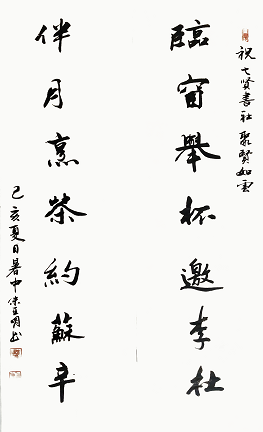 祝七賢書社聚賢如雲
臨窗舉杯邀李杜
伴月烹茶約蘇辛
己亥夏日暑中